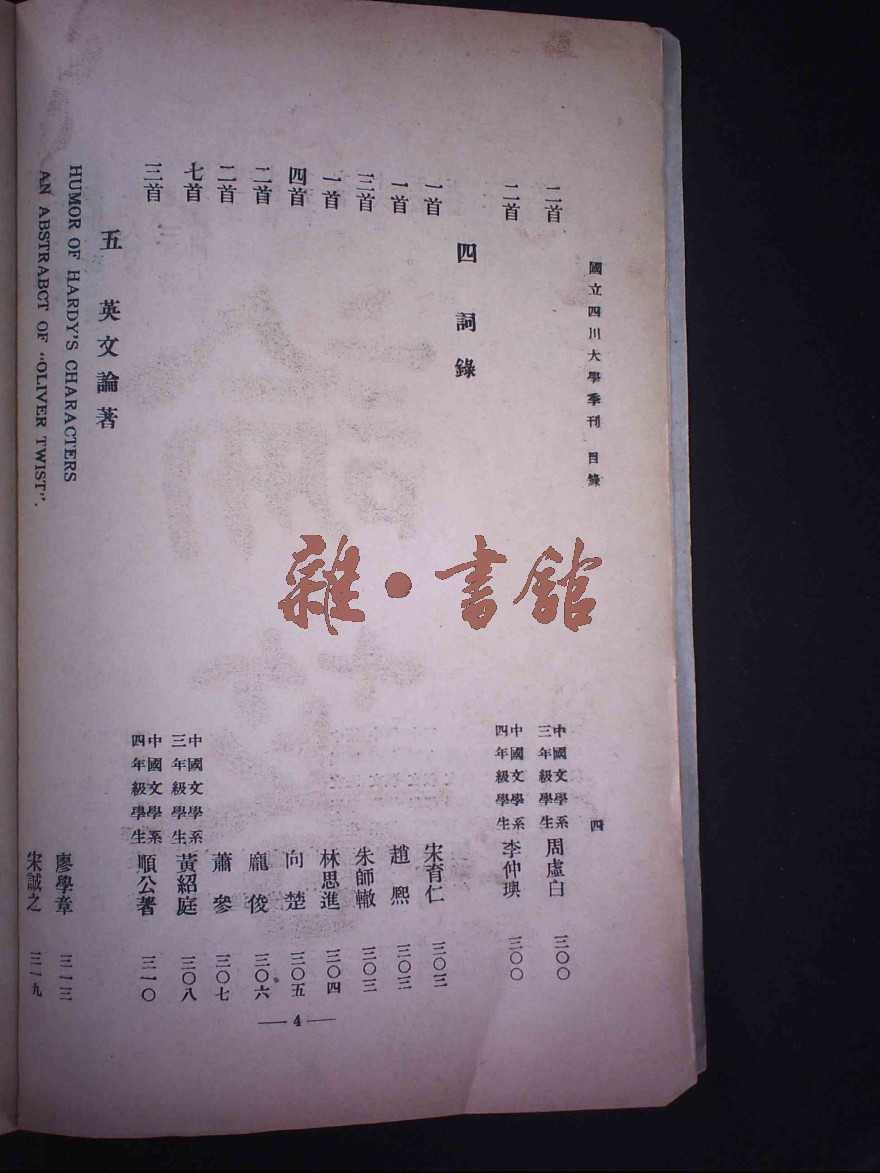 國立四川大學季刊 目錄 四
二首 中國文學系三年級學生 周虛白 三〇〇
二首 中國文學系四年級學生 李仲璵 三〇〇
四 詞錄
一首 宋育仁 三〇三
一首 趙熙 三〇三
三首 朱師轍 三〇三
一首 林思進 三〇四
四首 向楚 三〇五
二首 龐俊 三〇六
二首 蕭參 三〇七
七首 中國文學系三年級學生 黃紹庭 三〇八
三首 中國文學系四年級學生 順公著 三一〇
五 英文論著
HUMOR OF HARDY'S CHARACTERS 廖學章 三一三
AN ABSTRABCT OF "OLIVER TWIST". 宋誠之 三一九
— 4 —
雜·書館